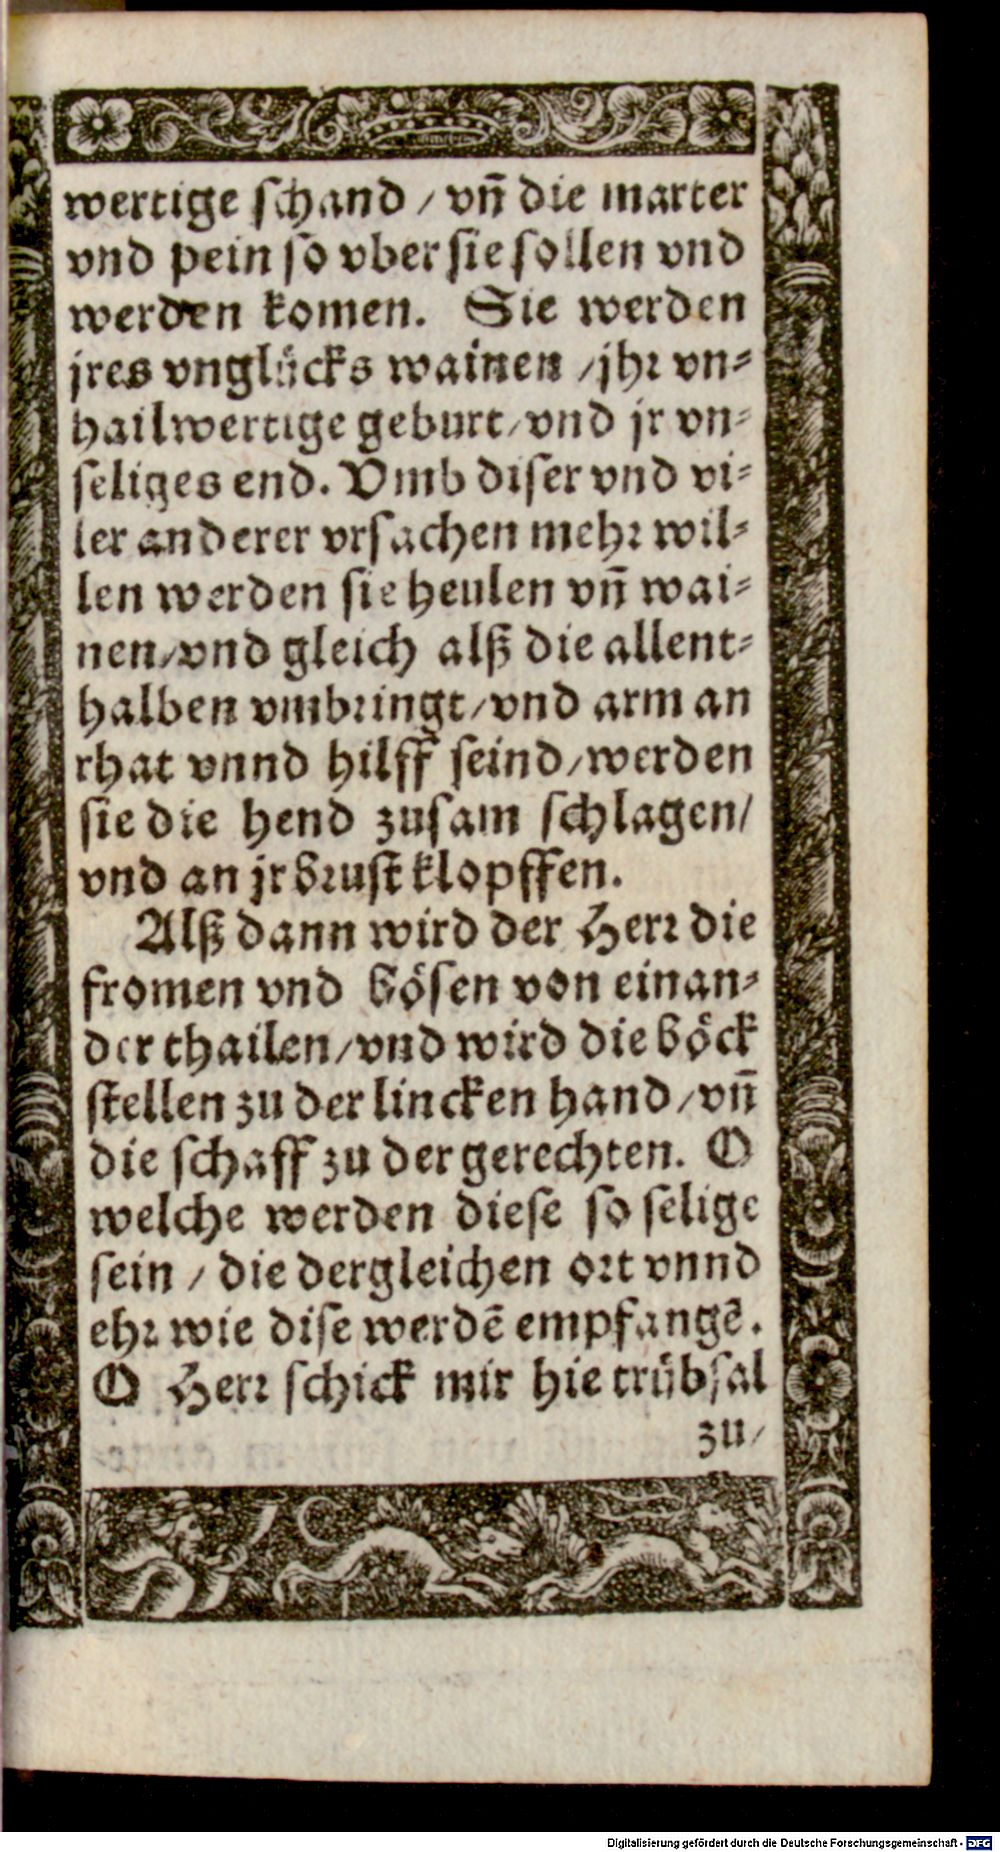 wertige schand / vñ die marter
vnd pein so vber sie sollen vnd
werden komen. Sie werden
jres vnglücks wainen / jhr vn=
hailwertige geburt / vnd jr vn=
seliges end. Vmb diser vnd vi=
ler anderer vrsachen mehr wil=
len werden sie heulen vñ wai=
nen / vnd gleich alß die allent=
halben vmbringt / vnd arm an
rhat vnnd hilff seind / werden
sie die hend zusam schlagen /
vnd an jr brust klopffen.
Alß dann wird der Herr die
fromen vnd bösen von einan=
der thailen / vnd wird die böck
stellen zu der lincken hand / vñ
die schaff zu der gerechten. O
welche werden diese so selige
sein / die dergleichen ort vnnd
ehr wie dise werdē empfangē.
O Herr schick mir hie trübsal
zu /
Digitalisierung gefördert durch die Deutsche Forschungsgemeinschaft - DFG